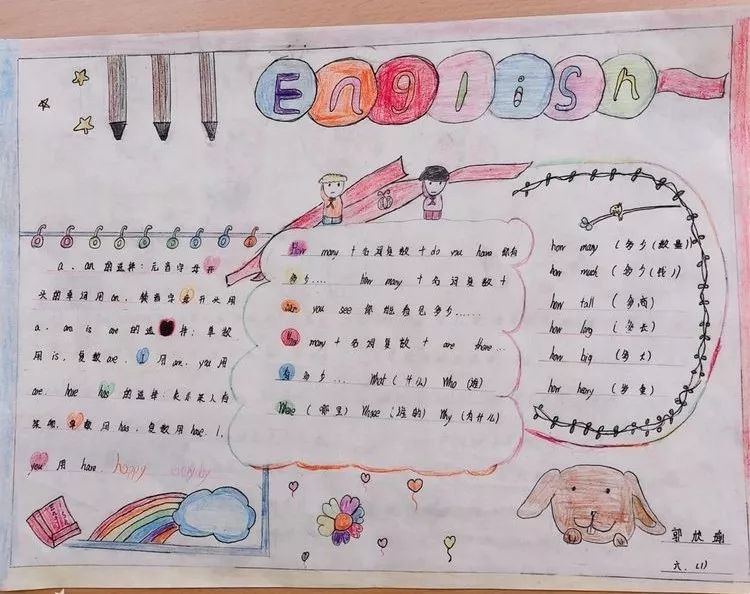 English
a、an 的选择：元音字母开
头的单词用 an，辅音字母开头用
a. am is are 的选择：单数
用 is，复数 are，I 用 am，you 用
are. have has 的选择：表示某人有
某物，单数用 has，复数用 have. I,
you 用 have. happy
How many + 名词复数 + do you have 你有
多少.... how many + 名词复数 +
can you see 你能看见多少......
How many + 名词复数 + are there...
有多少... What (什么) Who (谁)
Where (哪里) Whose (谁的) Why (为什么)
how many (多少(数量))
how much (多少(钱))
how tall (多高)
how long (多长)
how big (多大)
how heavy (多重)
郭欣
六.(1)